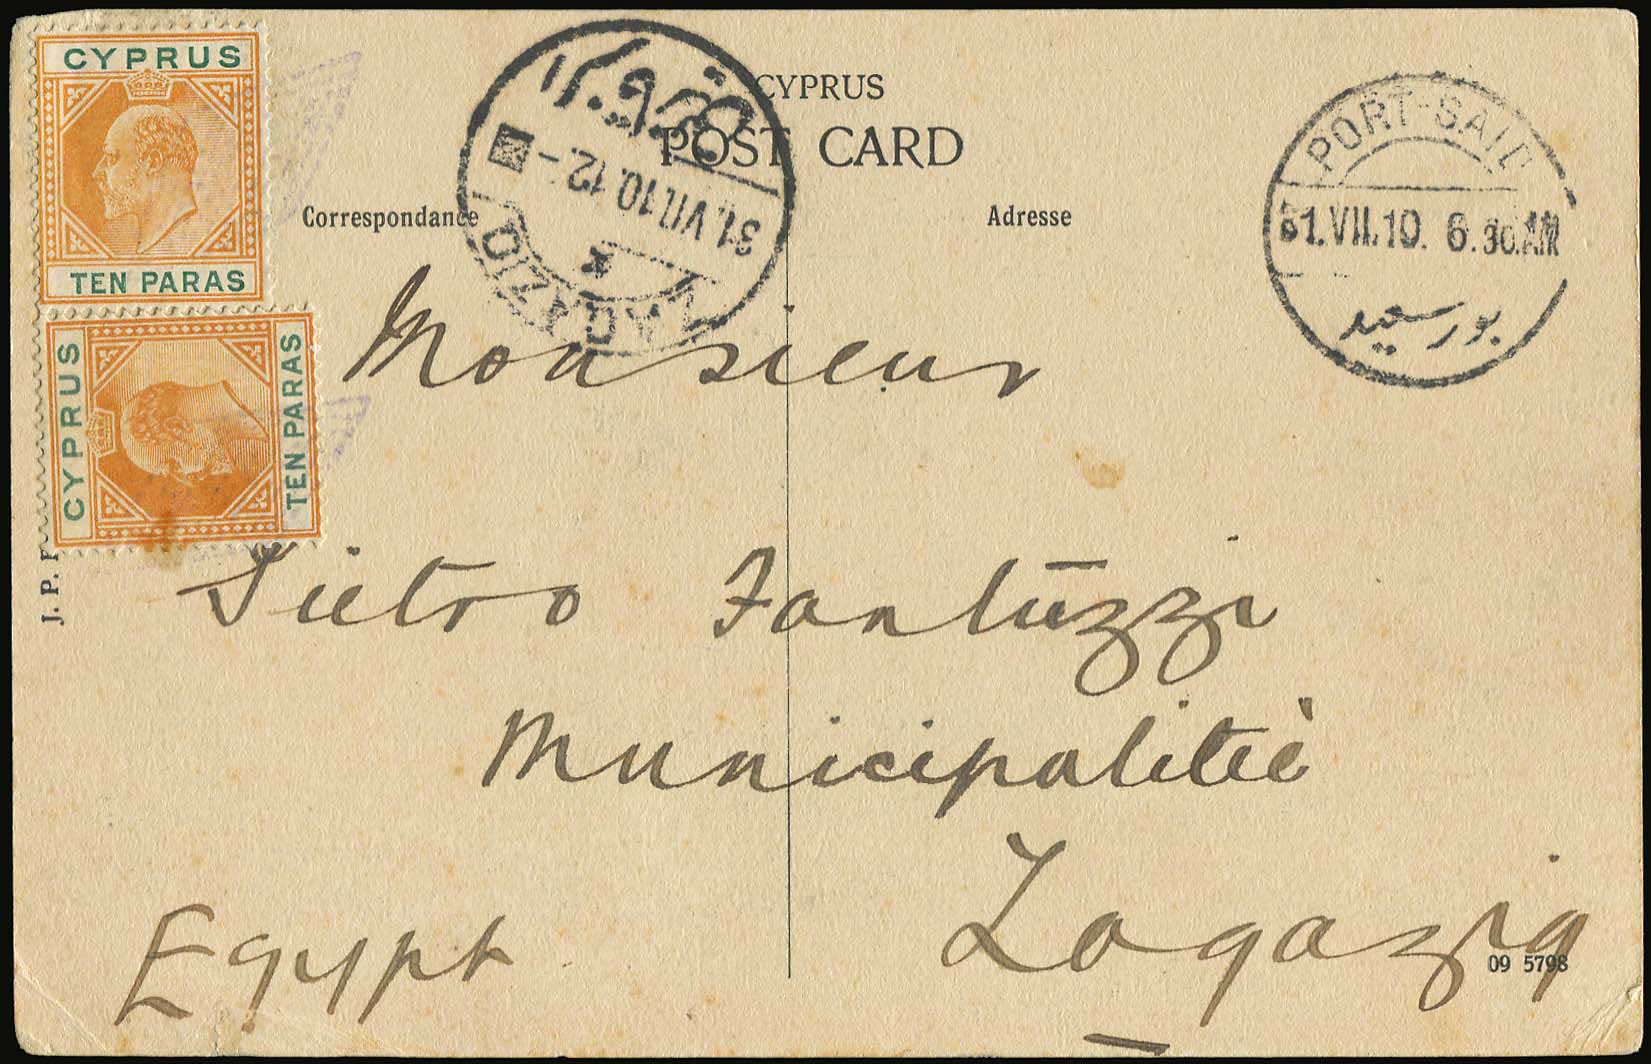 CYPRUS
TEN PARAS
CYPRUS
TEN PARAS
CYPRUS
POST CARD
Correspondance
Adresse
31.VII.10.12.-
ZAGAZIG
PORT-SAID
31.VII.10. 6.30.AM
بورسعيد
J. P.
Monsieur
Pietro Fantūzzi
Municipalitiè
Zagazig
Egypt
09 5798